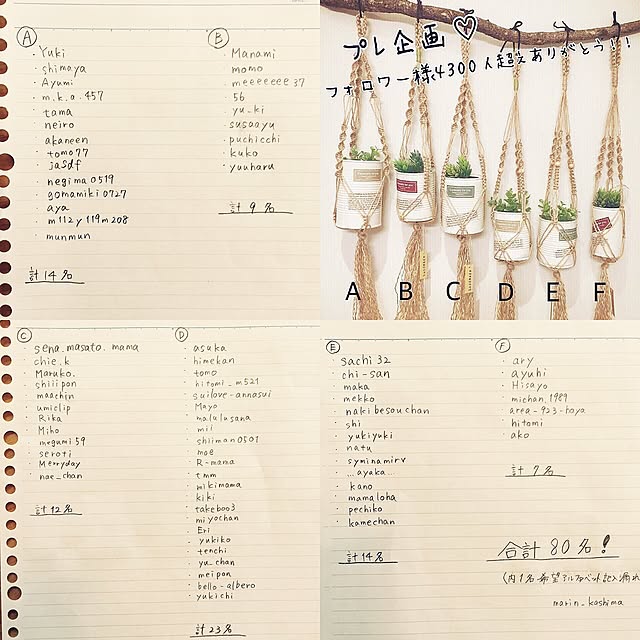 A
・Yuki
・shimaya
・Ayumi
・m.k.a.457
・tama
・neiro
・akaneen
・tomo77
・jasdf
・negima0519
・gomamiki0727
・aya
・m112y119m208
・munmun
計14名
B
・Manami
・momo
・meeeeeee37
・56
・yu_ki
・susaayu
・puchicchi
・kuko
・yuuharu
計9名
プレ企画♡
フォロワー様4300人超えありがとう!!
A B C D E F
C
・sena.masato.mama
・chie.k
・Maruko.
・shiiipon
・maachin
・umiclip
・Rika
・Miho
・megumi59
・seroti
・Merryday
・nae_chan
計12名
D
・asuka
・himekan
・tomo
・hitomi_m521
・suilove-annasui
・Mayo
・malulusana
・mii
・shiiman0501
・moe
・R-mama
・tmm
・mikimama
・kiki
・takeboo3
・miyochan
・Eri
・yukiko
・tenchi
・yu_chan
・meipon
・bello-albero
・yukichi
計23名
E
・sachi32
・chi-san
・maka
・mekko
・nakibesouchan
・shi
・yukiyuki
・natu
・syninamirv
・...ayaka...
・kano
・mamaloha
・pechiko
・kamechan
計14名
F
・ary
・ayuhi
・Hisayo
・michan.1989
・area-923-haya
・hitomi
・ako
計7名
合計80名!
(内1名希望アルファベット記入漏れ
marin_kashima